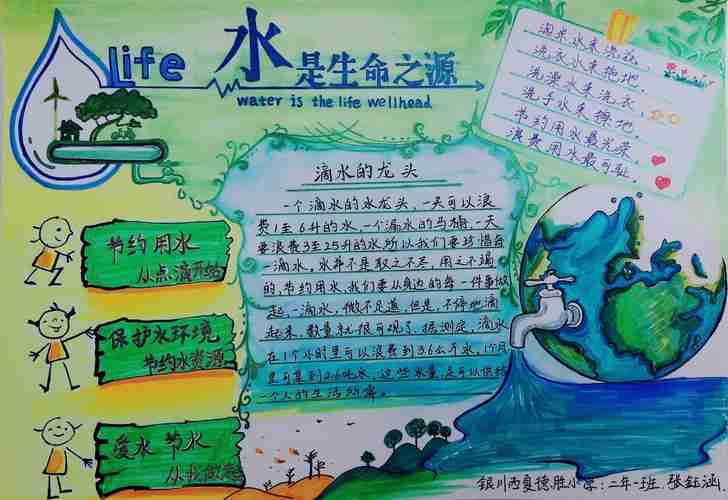 Life 水是生命之源
water is the life wellhead
淘米水来浇花,
洗衣水来拖地,
洗澡水来洗衣,
洗手水来擦地,
节约用水最光荣,
浪费用水最可耻。
滴水的龙头
一个滴水的水龙头,一天可以浪
费1至6升的水,一个漏水的马桶,一天
要浪费3至25升的水所以我们要珍惜每
一滴水,水并不是取之不尽,用之不竭
的,节约用水,我们要从身边的每一件事做
起,一滴水,微不足道,但是,不停地滴
起来,数量就很可观了,据测定,滴水
在1个小时里可以浪费到3.6公斤水,1个月
里可集到2.6吨水,这些水量,足可以供给
一个人的生活所需。
节约用水
从点滴开始
保护水环境
节约水资源
爱水 节水
从我做起
银川西夏德胜小学:二年一班 张钰涵